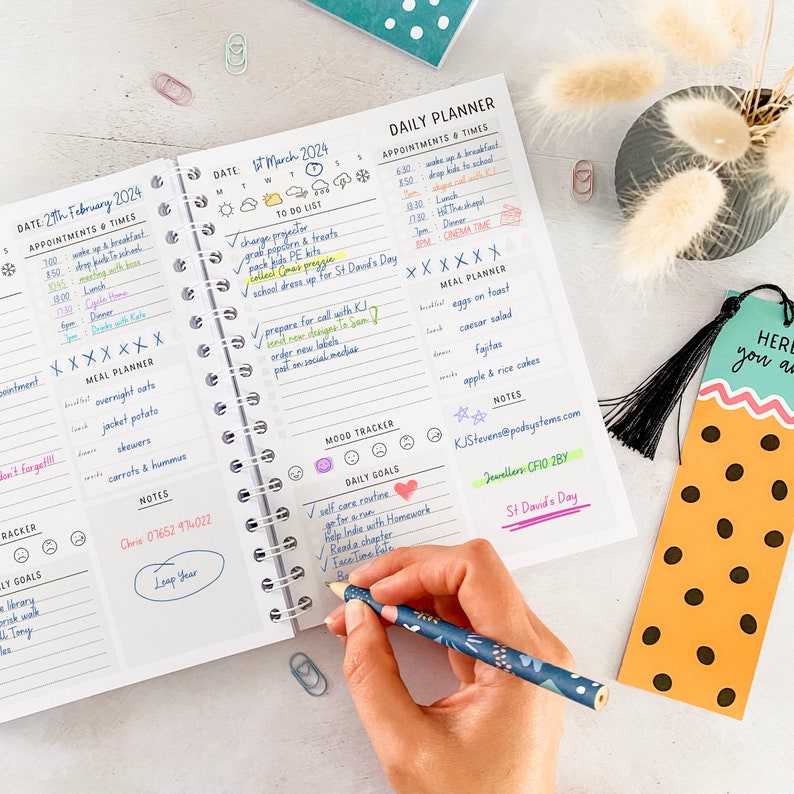 DATE: 29th February 2024
S
APPOINTMENTS & TIMES
7:00 : wake up & breakfast
8:50 : drop kids to school
10:45 : meeting with boss
13:00 : Lunch
17:30 : Cycle Home
6pm : Dinner
7pm : Drinks with Kate
MEAL PLANNER
breakfast overnight oats
lunch jacket potato
dinner skewers
snacks carrots & hummus
NOTES
Chris: 07652 974022
Leap Year
don't forget!!!
TRACKER
GOALS
library
walk
Tony
DAILY PLANNER
DATE: 1st March 2024
M T W T F S S
TO DO LIST
charge projector
grab popcorn & treats
pack kids PE kits
collect Gmas prezzie
school dress up for St David's Day
prepare for call with KJ
send new designs to Sam!
order new labels
post on social medias
MOOD TRACKER
DAILY GOALS
self care routine
go for a run
help Indie with Homework
Read a chapter
FaceTime Kate
APPOINTMENTS & TIMES
6:30 : wake up & breakfast
8:50 : drop kids to school
11am : skype call with KJ
13:30 : Lunch
17:30 : Hit the shops!
7pm : Dinner
8PM : CINEMA TIME
MEAL PLANNER
breakfast eggs on toast
lunch caesar salad
dinner fajitas
snacks apple & rice cakes
NOTES
KJStevens@podsystems.com
Jewellers CF10 2BY
St David's Day
HERE
you